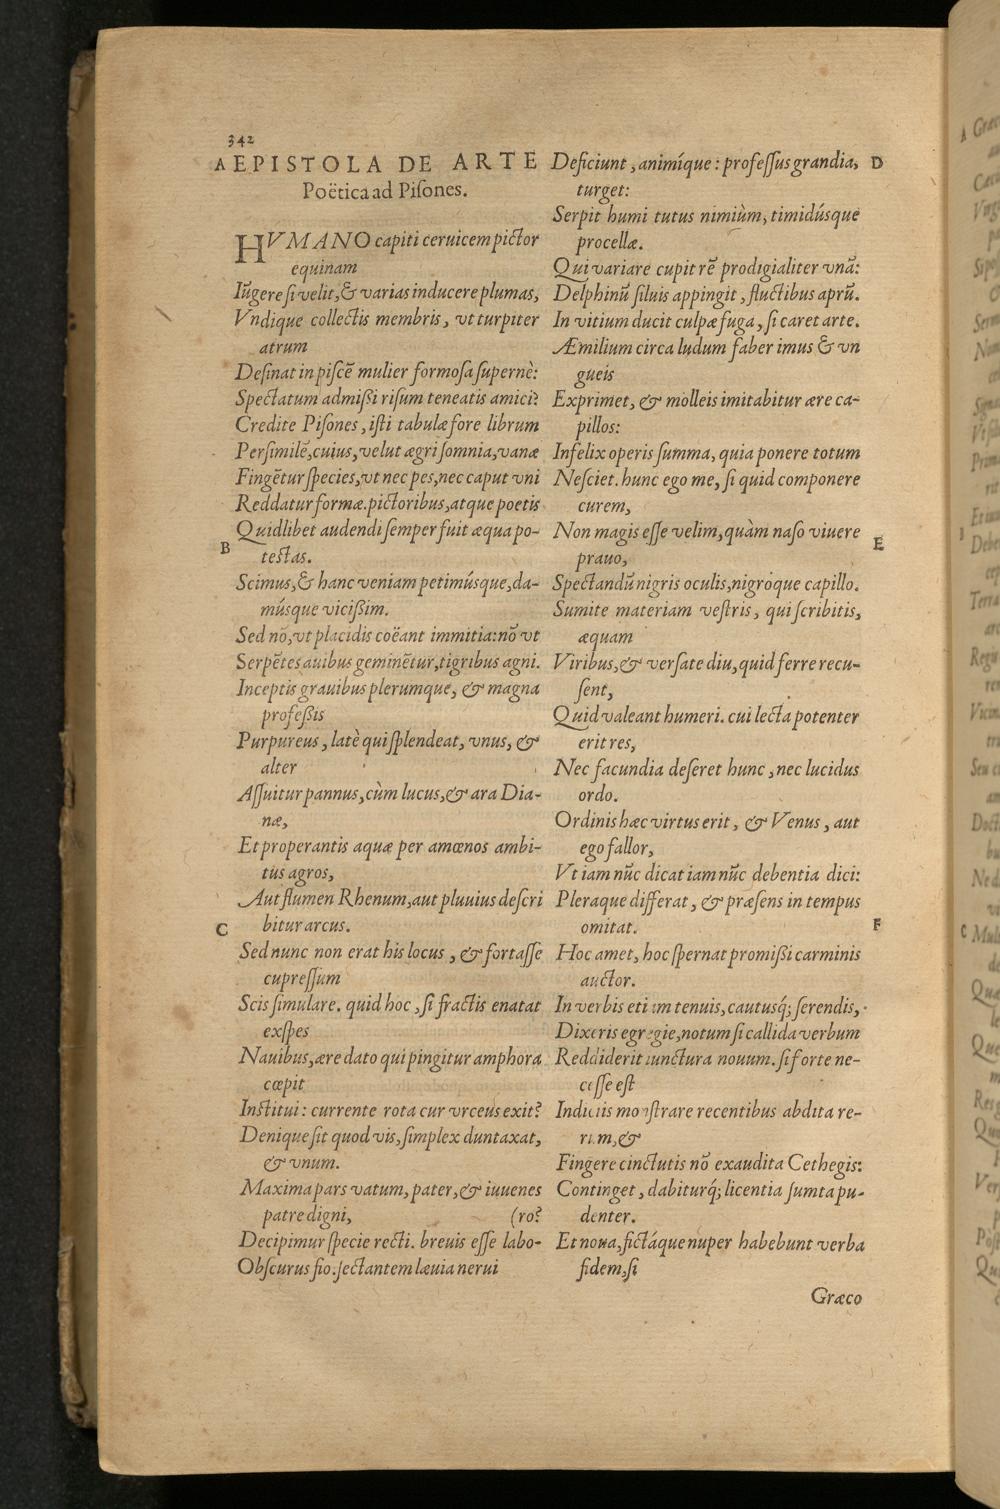 342
A EPISTOLA DE ARTE
Poëtica ad Piſones.
HVMANO capiti ceruicem pictor
equinam
Iūgere ſi velit, & varias inducere plumas,
Vndique collectis membris, vt turpiter
atrum
Deſinat in piſcē mulier formoſa ſupernè:
Spectatum admiſſi riſum teneatis amici?
Credite Piſones, iſti tabulæ fore librum
Perſimilē, cuius, velut ægri ſomnia, vanæ
Fingētur ſpecies, vt nec pes, nec caput vni
Reddatur formæ. pictoribus, atque poetis
Quidlibet audendi ſemper fuit æqua po-
B
teſtas.
Scimus, & hanc veniam petimúsque, da-
músque viciſſim.
Sed nō, vt placidis coëant immitia: nō vt
Serpētes auibus geminētur, tigribus agni.
Inceptis grauibus plerumque, & magna
profeſſis
Purpureus, latè qui ſplendeat, vnus, &
alter
Aſſuitur pannus, cùm lucus, & ara Dia-
næ,
Et properantis aquæ per amœnos ambi-
tus agros,
Aut flumen Rhenum, aut pluuius deſcri
C
bitur arcus.
Sed nunc non erat his locus, & fortaſſe
cupreſſum
Scis ſimulare. quid hoc, ſi fractis enatat
exſpes
Nauibus, ære dato qui pingitur amphora
cœpit
Inſtitui: currente rota cur vrceus exit?
Denique ſit quod vis, ſimplex duntaxat,
& vnum.
Maxima pars vatum, pater, & iuuenes
patre digni, (ro?
Decipimur ſpecie recti. breuis eſſe labo-
Obſcurus fio. ſectantem læuia nerui
Deficiunt, animíque: profeſſus grandia, D
turget:
Serpit humi tutus nimiùm, timidúsque
procellæ.
Qui variare cupit rē prodigialiter vnā:
Delphinū ſiluis appingit, fluctibus aprū.
In vitium ducit culpæ fuga, ſi caret arte.
Æmilium circa ludum faber imus & vn
gueis
Exprimet, & molleis imitabitur ære ca-
pillos:
Infelix operis ſumma, quia ponere totum
Neſciet. hunc ego me, ſi quid componere
curem,
Non magis eſſe velim, quàm naſo viuere
E
prauo,
Spectandū nigris oculis, nigroque capillo.
Sumite materiam veſtris, qui ſcribitis,
æquam
Viribus, & verſate diu, quid ferre recu-
ſent,
Quid valeant humeri. cui lecta potenter
erit res,
Nec facundia deſeret hunc, nec lucidus
ordo.
Ordinis hæc virtus erit, & Venus, aut
ego fallor,
Vt iam nūc dicat iam nūc debentia dici:
Pleraque differat, & præſens in tempus
omitat. F
Hoc amet, hoc ſpernat promiſſi carminis
auctor.
In verbis etiam tenuis, cautusq́; ſerendis,
Dixeris egregie, notum ſi callida verbum
Reddiderit iunctura nouum. ſi forte ne-
ceſſe eſt
Indiciis monſtrare recentibus abdita re-
rum, &
Fingere cinctutis nō exaudita Cethegis:
Continget, dabiturq́; licentia ſumta pu-
denter.
Et noua, fictáque nuper habebunt verba
fidem, ſi
Græco